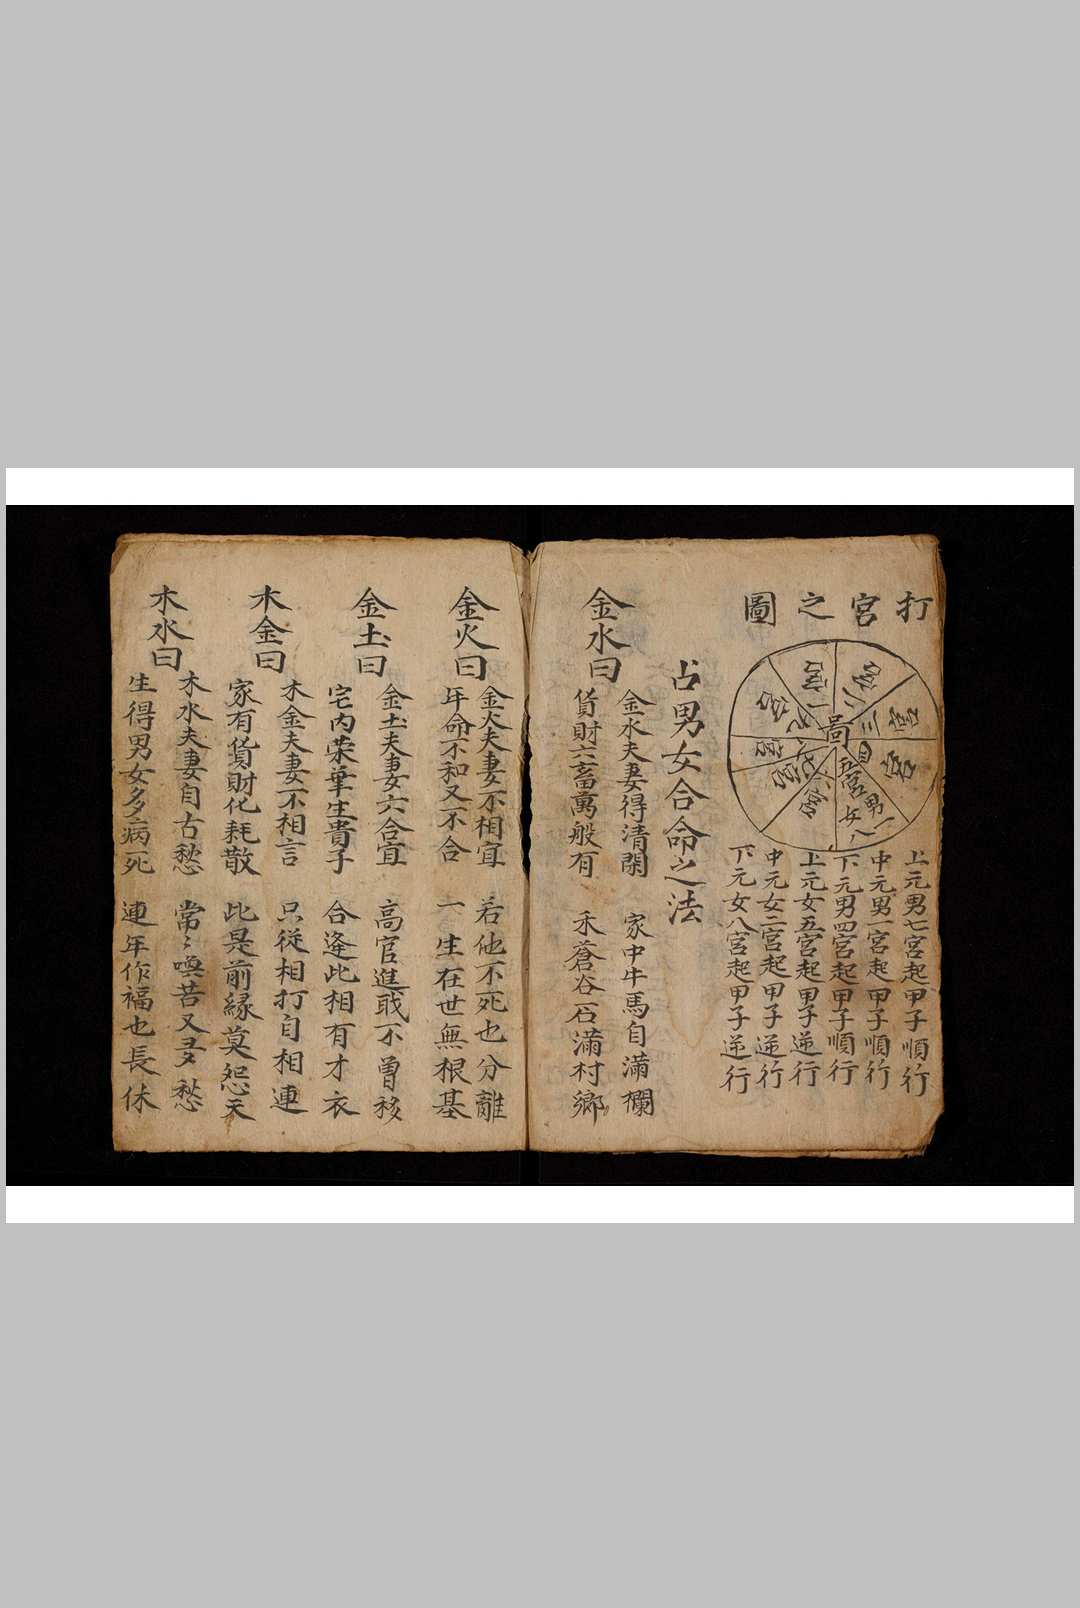 打宮之圖
一宮
二宮
三宮
四宮
五宮男一女八
六宮
七宮
八宮
九宮
圖
上元男七宮起甲子順行
中元男一宮起甲子順行
下元男四宮起甲子順行
上元女五宮起甲子逆行
中元女二宮起甲子逆行
下元女八宮起甲子逆行
占男女合命之法
金水曰
金水夫妻得清閑 家中牛馬自滿欄
貨財六畜萬般有 禾蒼谷石滿村鄉
金火曰
金火夫妻不相宜 若他不死也分離
年命不和又不合 一生在世無根基
金土曰
金土夫妻六合宜 高官進戝不曽移
宅内荣華生貴子 合逢此相有才衣
木金曰
木金夫妻不相言 只從相打自相連
家有貨財化耗散 此是前緣莫怨天
木水曰
木水夫妻自古愁 常〻喚苦又多愁
生得男女多病死 連年作福也長休